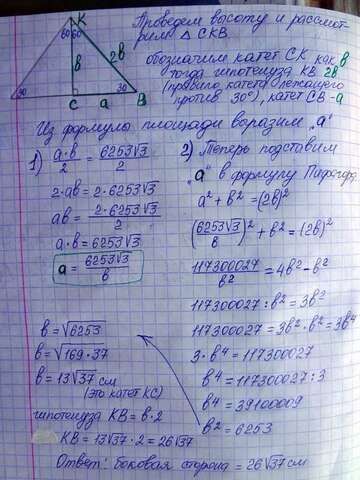 Проведем высоту и рассмот
рим △ СКВ
обозначим катет СК как в
тогда гипотенуза КВ 2в
(правило катета лежащего
против 30°), катет СВ - а
К
60 60
в
2в
30
С
а
30
В
Из формулы площади выразим "а"
1) a·b/2 = 6253√3/2
2·ab = 2·6253√3
ab = 2·6253√3/2
a·b = 6253√3
a = 6253√3/b
2) Теперь подставим
"а" в формулу Пифагора
a² + b² = (2b)²
(6253√3/b)² + b² = (2b)²
117300027/b² = 4b² - b²
117300027 : b² = 3b²
117300027 = 3b²·b² = 3b⁴
3·b⁴ = 117300027
b⁴ = 117300027 : 3
b⁴ = 39100009
b² = 6253
b = √6253
b = √169·37
b = 13√37 см
(это катет КС)
гипотенуза КВ = b·2
КВ = 13√37·2 = 26√37
Ответ: боковая сторона = 26√37 см